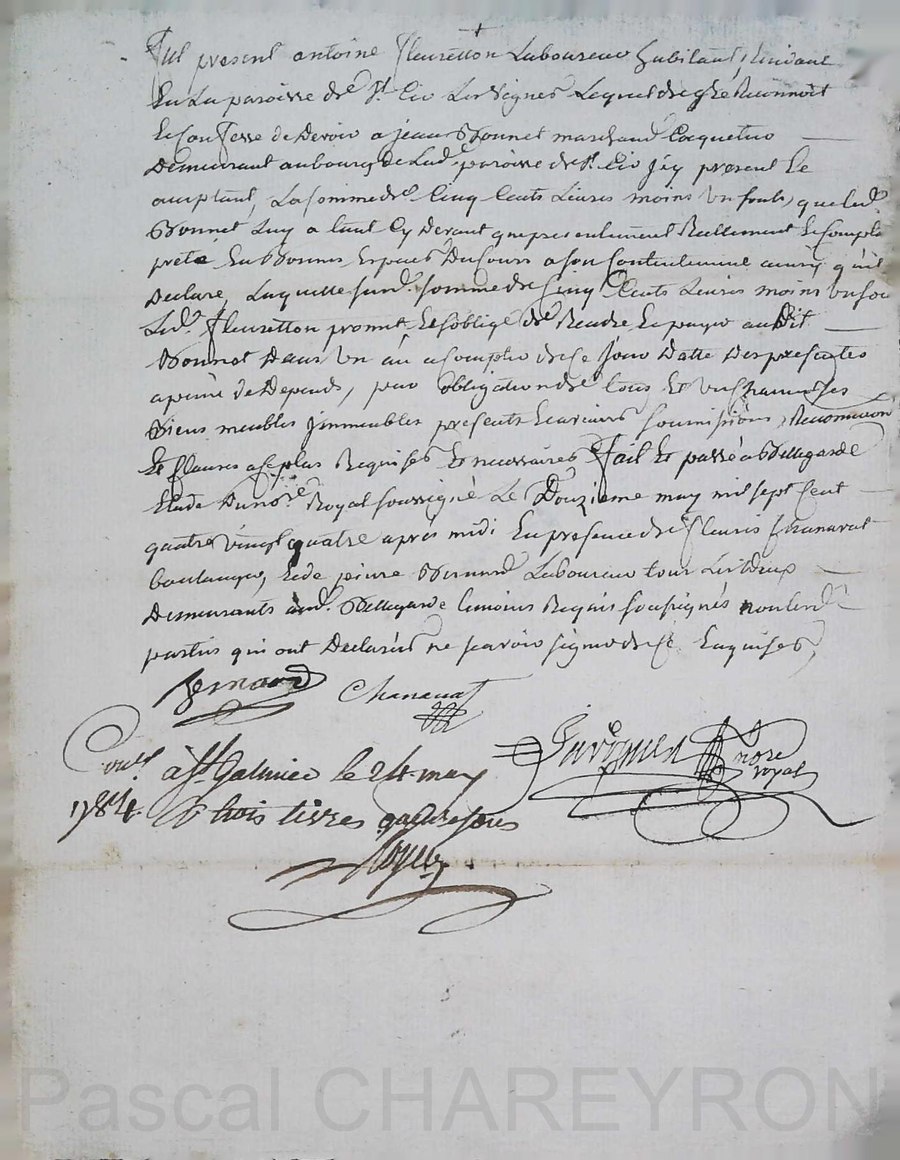 fut present antoine fleuretton Laboureur habitant, Residant
En La paroisse de St. Cir Les Vignes Lequel de gré Reconnoit
Et Confesse de Devoir a jean Bonnet marchand Coquetier
Demeurant au bourg de Lade. paroisse de St. Cir jcy present Et
acceptant, La somme de Cinq Cents Livres moins un soub, que led.
Bonnet Luy a tant Cy Devant que presentement Réellement Et Comptant
preté En Bonnes Especes Du Cours a son Contentement ainsy qu'il
Declare, Laquelle susd. somme de Cinq Cents Livres moins un sou
Led. fleuretton promet Et s'oblige de Rendre Et payer au Dit
Bonnet Dans un an a Compter de Ce jour Datte Des presentes
a peine de Depends, par obligation de tous Et un Chacun ses
Biens meubles jmmeubles presents Et avenirs soumissions, Renonciation
Et Clauses a Ce plus Requises Et necessaires fait Et passé a Bellegarde
Etude Du nore. Royal soussigné Le Douzieme may mil sept Cent
quatre vingt quatre aprés midi En presence de fleuris Chanavat
boulanger, Et de pierre Bernard Laboureur tous Les Deux
Demeurants aud. Bellegarde temoins Requis soussignés non Lesd.
parties qui ont Declarés ne sçavoir signer de Ce Enquises,
Bernard Chanavat
nore
royal
Coull. à St Galmier le 24 may
1784. R trois livres quatre sous